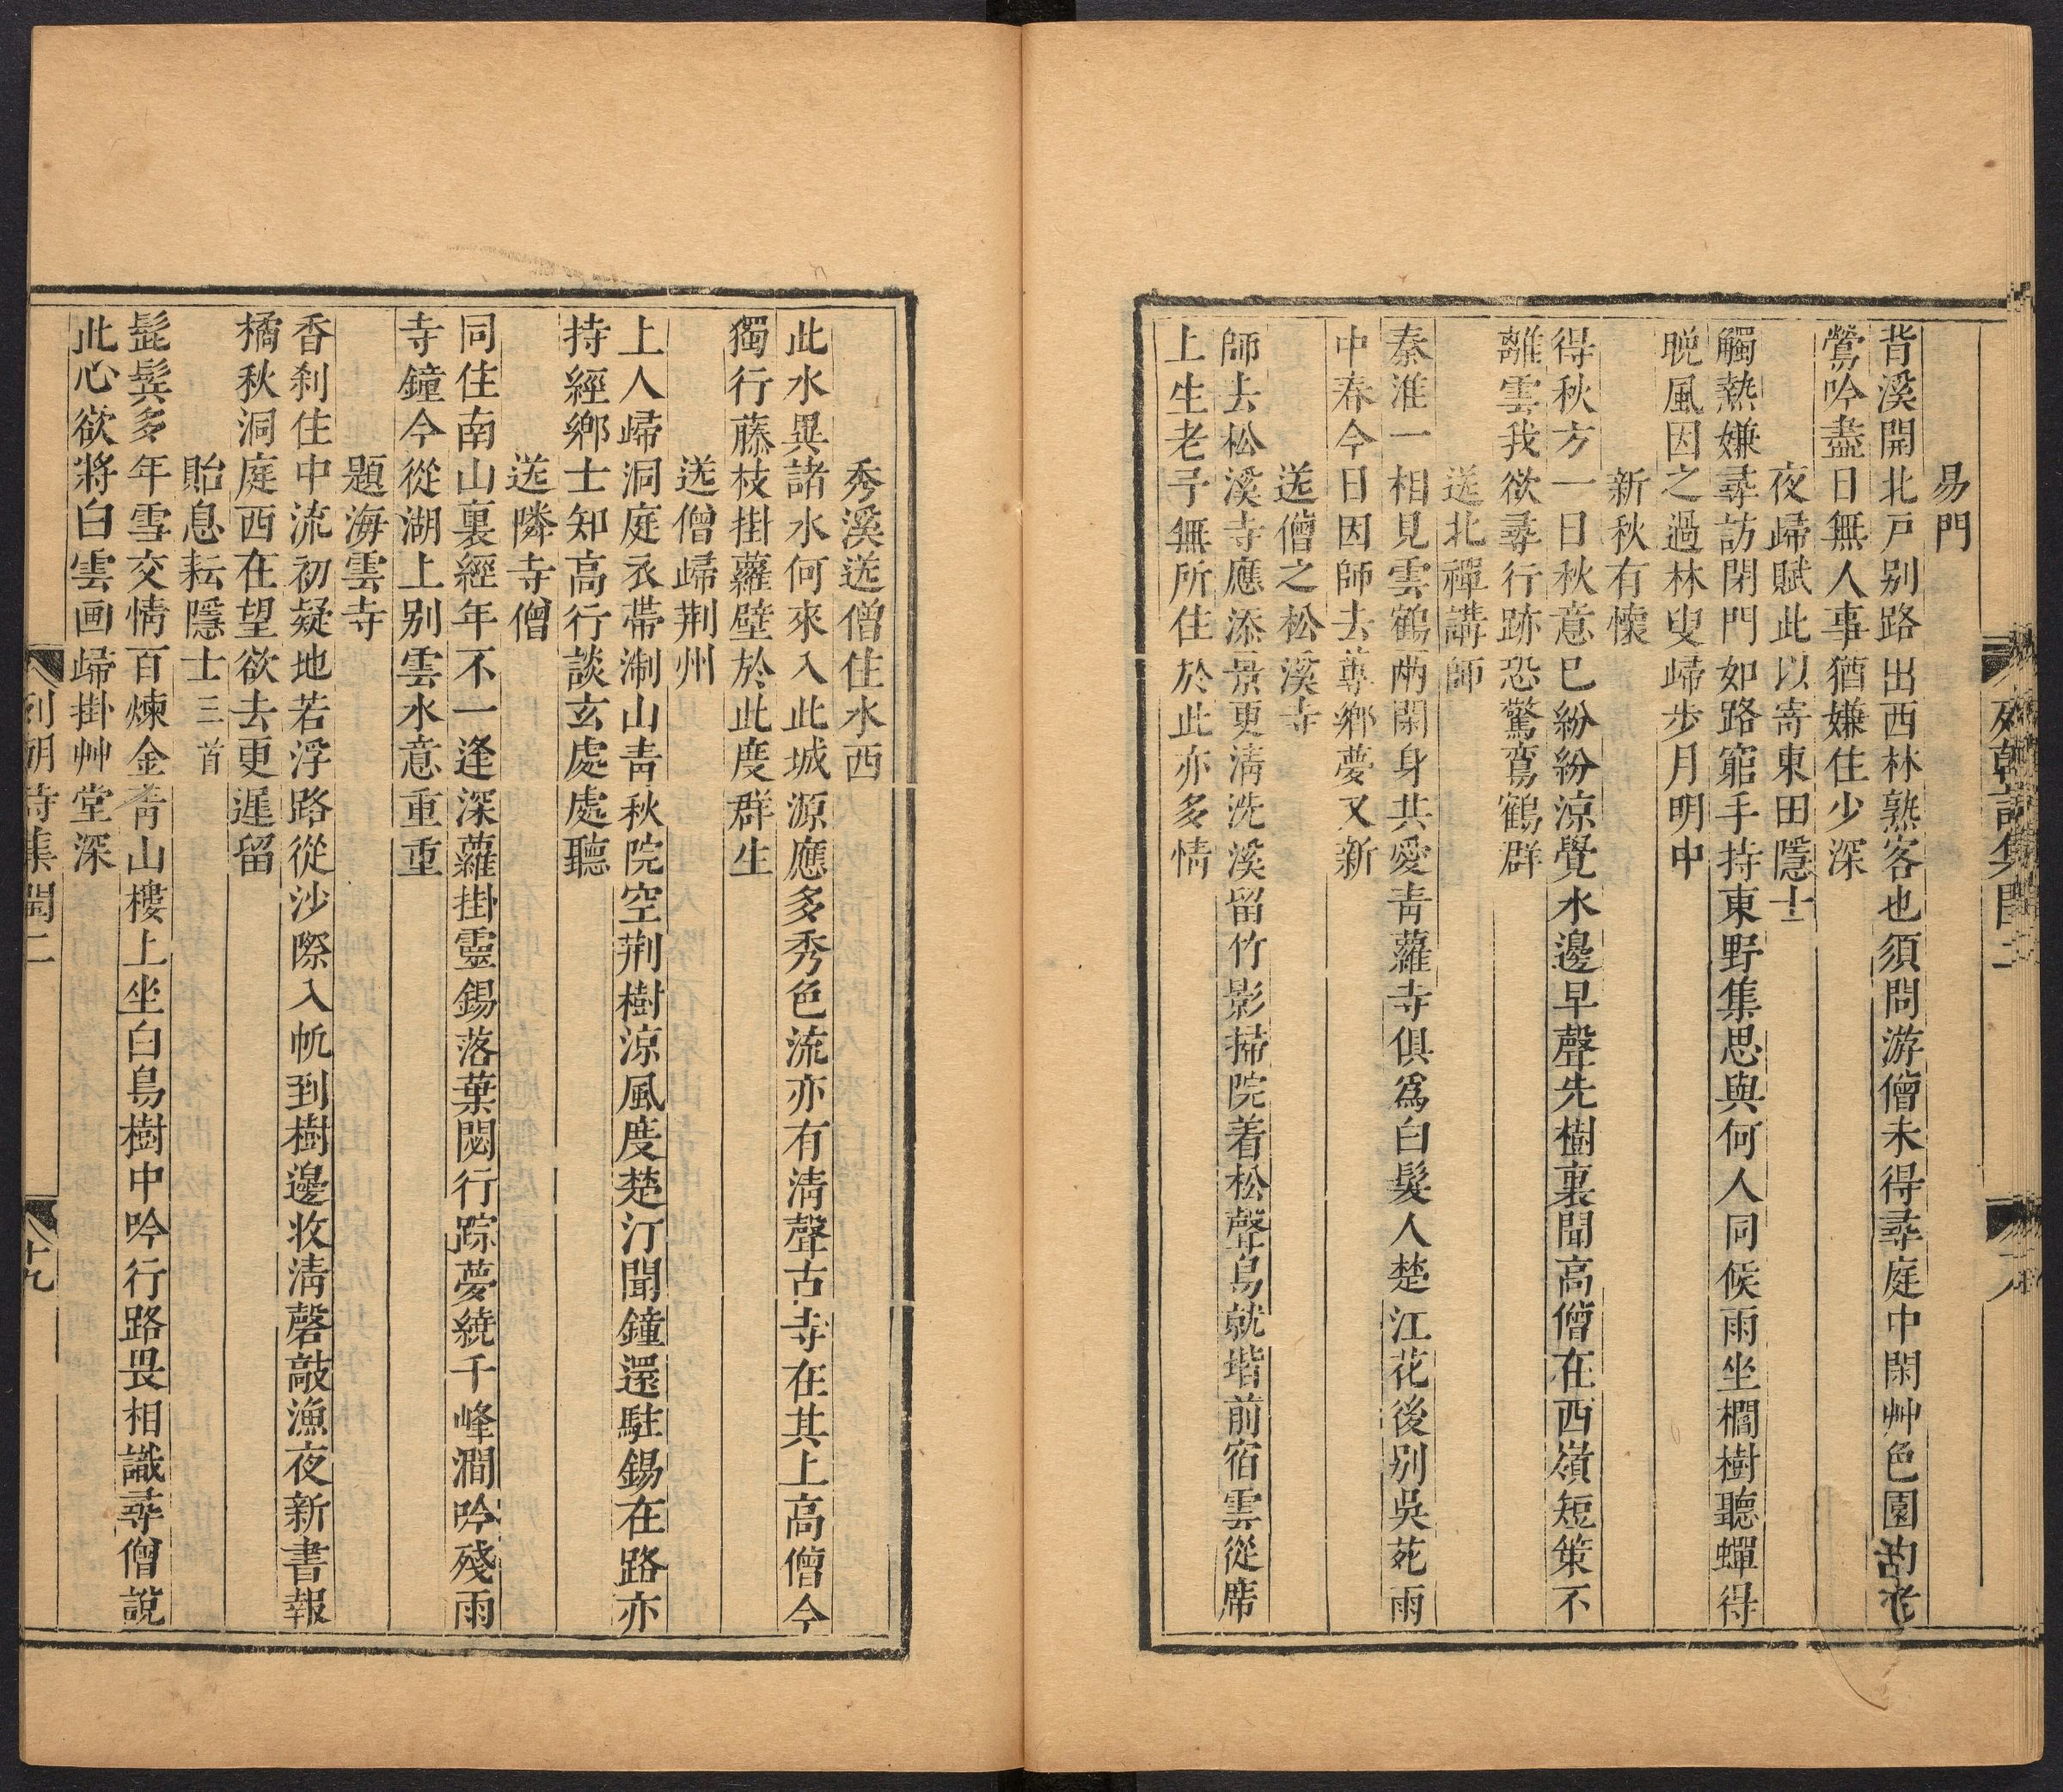 列朝詩集閏二
易門
背溪開北戸别路出西林熟客也須問游僧未得尋庭中閑艸色園的老
鶯吟盡日無人事猶嫌住少深
夜歸賦此以寄東田隱士
觸熱嫌尋訪閉門如路窮手持東野集思與何人同候雨坐櫚樹聽蟬得
晩風因之過林叟歸步月明中
新秋有懷
得秋方一日秋意已紛紛涼覺水邊早聲先樹裏聞高僧在西嶺短策不
離雲我欲尋行跡恐驚鸞鶴群
送北禪講師
秦淮一相見雲鶴兩閑身共愛青蘿寺俱爲白髮人楚江花後别吳苑雨
中春今日因師去蓴鄉夢又新
送僧之松溪寺
師去松溪寺應添景更清洗溪留竹影掃院着松聲鳥就堦前宿雲從席
上生老予無所住於此亦多情
秀溪送僧住水西
此水異諸水何來入此城源應多秀色流亦有清聲古寺在其上高僧今
獨行藤枝掛蘿壁於此度群生
送僧歸荆州
上人歸洞庭衣帶淛山青秋院空荆樹涼風度楚汀聞鐘還駐錫在路亦
持經鄉士知高行談玄處處聽
送隣寺僧
同住南山裏經年不一逢深蘿掛靈錫落葉閟行踪夢繞千峰澗吟殘雨
寺鐘今從湖上别雲水意重重
題海雲寺
香刹住中流初疑地若浮路從沙際入帆到樹邊收清磬敲漁夜新書報
橘秋洞庭西在望欲去更遲留
貽息耘隱士三首
髭鬂多年雪交情百煉金青山樓上坐白鳥樹中吟行路畏相識尋僧說
此心欲將白雲画歸掛艸堂深
列朝詩集閏二
十九